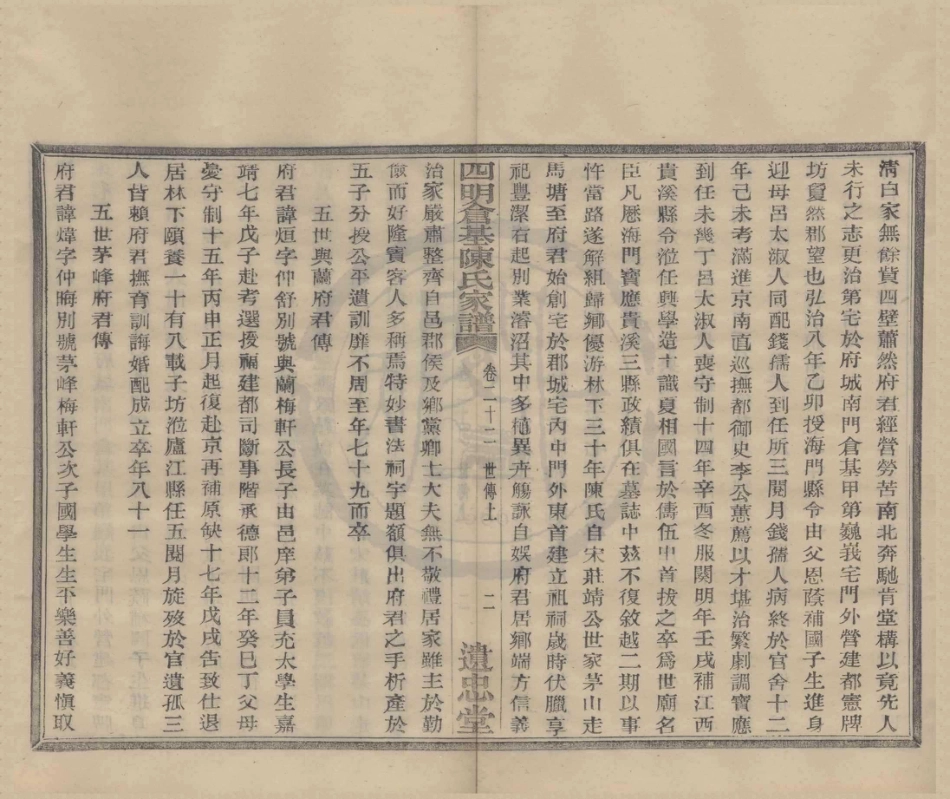 清白家無餘貲四壁蕭然府君經營勞苦南北奔馳肯堂構以竟先人
未行之志更治第宅於府城南門倉基甲第巍峩宅門外營建都憲牌
坊夐然郡望也弘治八年乙卯授海門縣令由父恩蔭補國子生進身
迎母呂太淑人同配錢孺人到任所三閱月錢孺人病終於官舍十二
年己未考滿進京南直巡撫都御史李公蕙薦以才堪治繁劇調寶應
到任未幾丁呂太淑人喪守制十四年辛酉冬服闋明年壬戌補江西
貴溪縣令涖任興學造士識夏相國言於儔伍中首拔之卒爲世廟名
臣凡歷海門寶應貴溪三縣政績俱在墓誌中茲不復敘越二期以事
忤當路遂解組歸鄉優游林下三十年陳氏自宋莊靖公世家茅山走
馬塘至府君始創宅於郡城宅丙中門外東首建立祖祠歲時伏臘享
祀豐潔右起別業濬沼其中多植異卉觴詠自娛府君居鄉端方信義
四明倉基陳氏家譜 卷二十二 世傳上 二 遺忠堂
治家嚴肅整齊自邑郡侯及鄉黨鄉士大夫無不敬禮居家雖主於勤
儉而好隆賓客人多稱焉特妙書法祠宇題額俱出府君之手析產於
五子分授公平遺訓靡不周至年七十九而卒
五世與蘭府君傳
府君諱烜字仲舒別號與蘭梅軒公長子由邑庠弟子員充太學生嘉
靖七年戊子赴考選授福建都司斷事階承德郎十二年癸巳丁父母
憂守制十五年丙申正月起復赴京再補原缺十七年戊戌告致仕退
居林下頤養一十有八載子坊涖廬江縣任五閱月旋歿於官遺孤三
人皆賴府君撫育訓誨婚配成立卒年八十一
五世茅峰府君傳
府君諱煒字仲晦別號茅峰梅軒公次子國學生生平樂善好義愼取